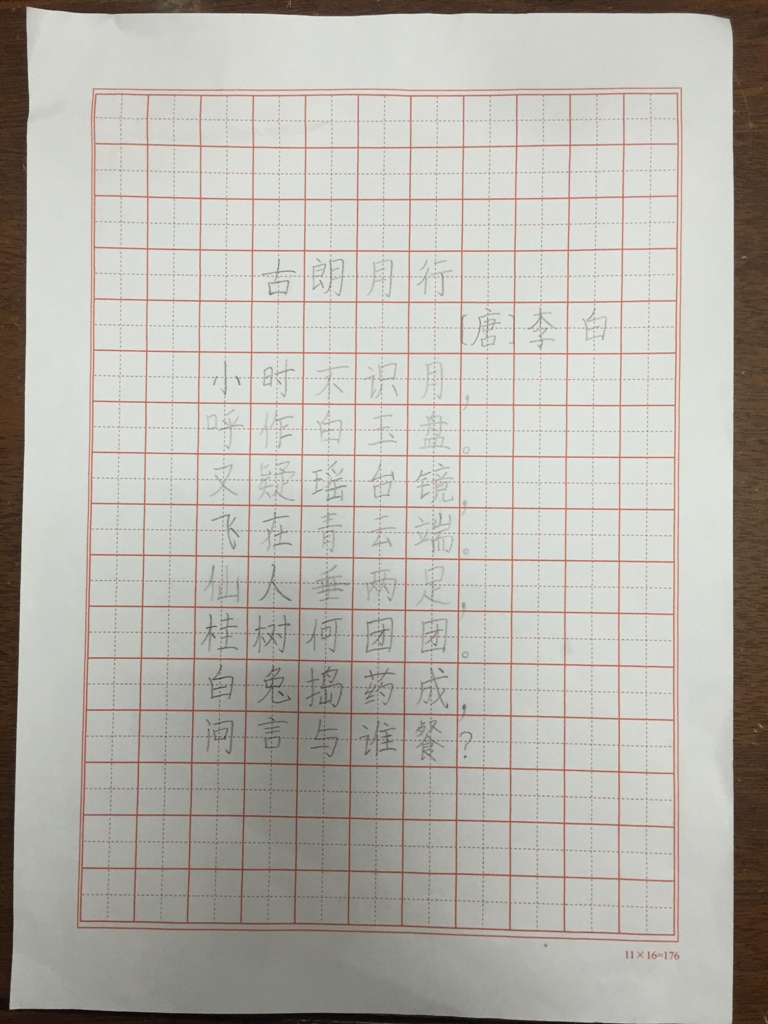 古朗月行
[唐]李白
小时不识月，
呼作白玉盘。
又疑瑶台镜，
飞在青云端。
仙人垂两足，
桂树何团团。
白兔捣药成，
问言与谁餐？
11×16=176